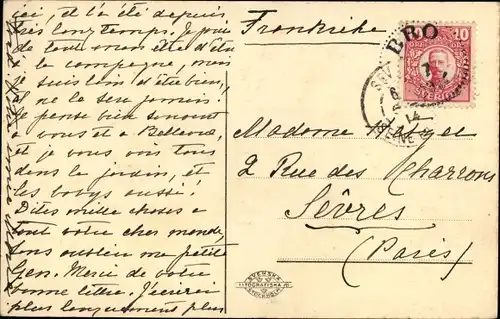 ici, et l'a été depuis
très longtemps. Je puis
de tout mon être d'être
à la campagne, mais
je suis loin d'être bien,
à ne la sera jamais!
Je pense bien souvent
à vous et à Bellevue,
et je vous vois tous
dans le jardin, et
les babys aussi!
Dites mille choses à
tout votre cher monde,
sans oublier ma petite
Gen. Merci de votre
bonne lettre. J'écrirai
plus longuement plus
Frankrike
BRO
10
SVERIGE
14
Madame
2 Rue des Charrons
Sèvres
(Paris)
SVENSKA
LITOGRAFISKA AB
STOCKHOLM